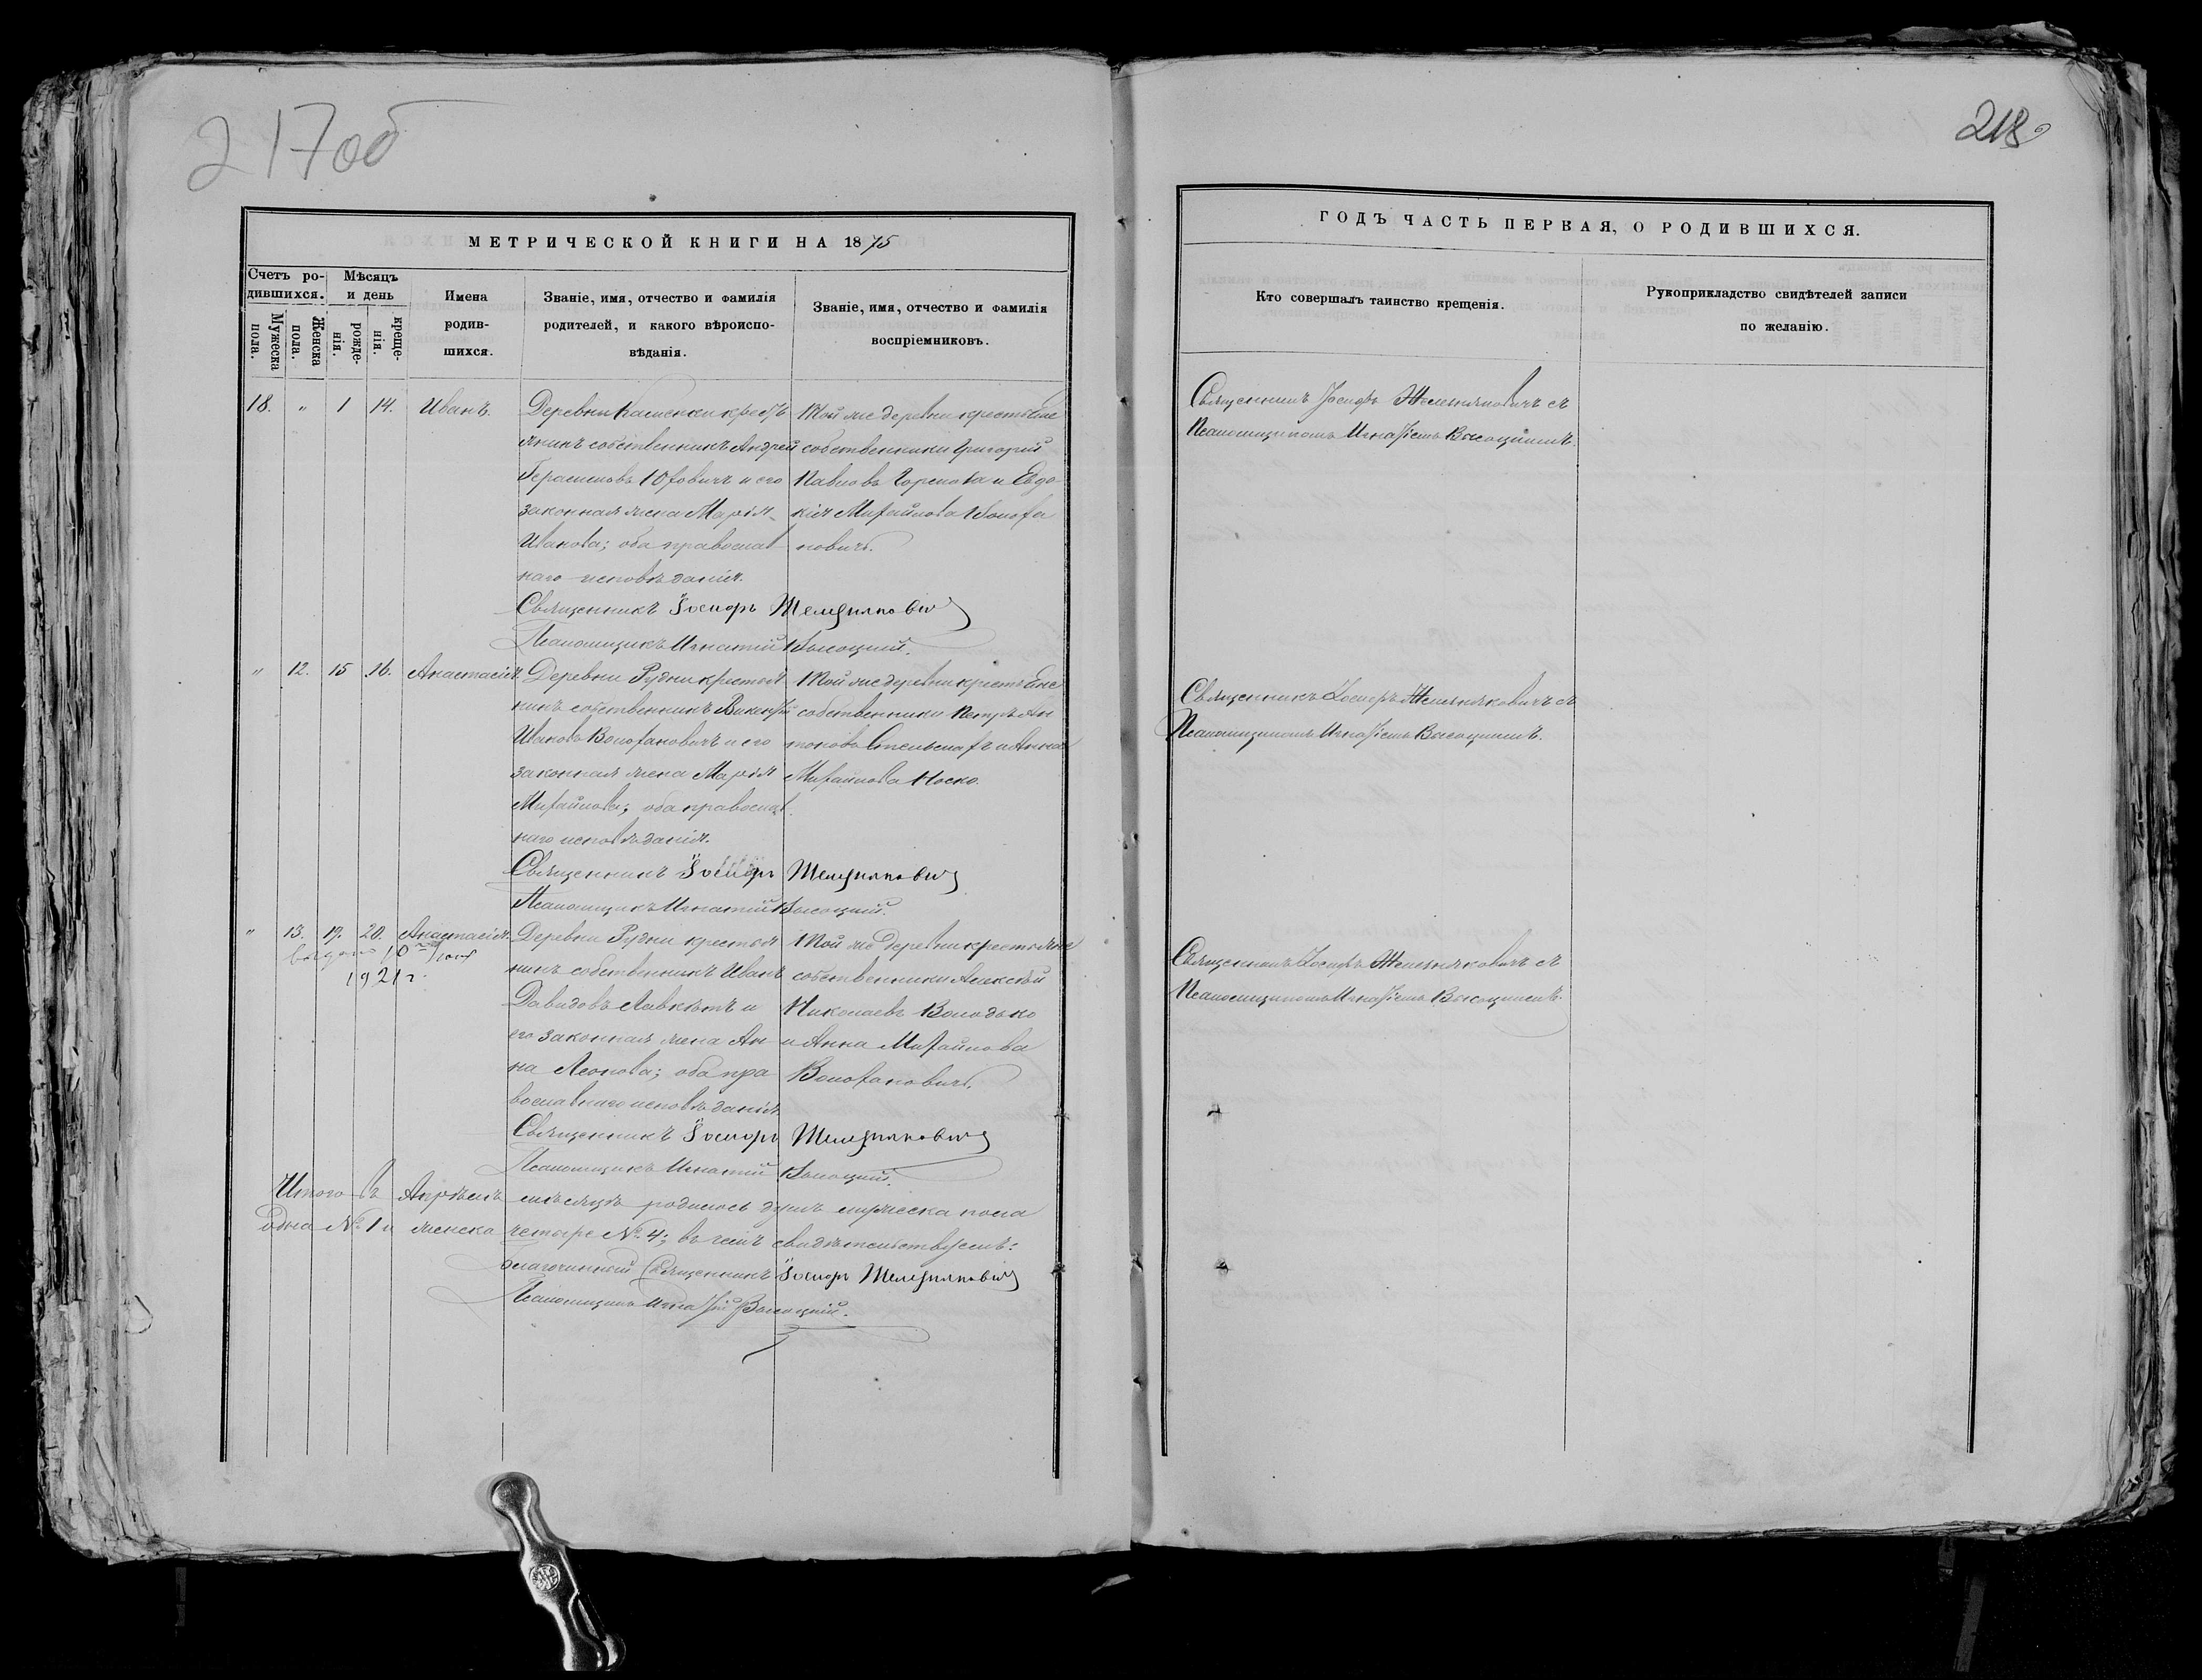 217об
МЕТРИЧЕСКОЙ КНИГИ НА 1875
Счетъ ро-
дившихся.
Мѣсяцъ
и день
Мужеска
пола.
Женска
пола.
рожде-
нія.
креще-
нія.
Имена
родив-
шихся.
Званіе, имя, отчество и фамилія
родителей, и какого вѣроиспо-
вѣданія.
Званіе, имя, отчество и фамилія
воспріемниковъ.
18. " 1 14. Иванъ.
Деревни Каменки крестья
нинъ собственникъ Андрей
Герасимовъ и его
законная жена Марія
Иванова; оба православ
наго исповѣданія.
Той же деревни крестьяне
собственники Григорій
Павловъ и Евдо
кія Михайлова
новичъ.
Священникъ Іосифъ
Псаломщикъ Игнатій Высоцкій.
" 12. 15 16. Анастасія.
Деревни Рудни крестья
нинъ собственникъ Викентій
Ивановъ Волотановичъ и его
законная жена Марія
Михайлова; оба православ
наго исповѣданія.
Той же деревни крестьяне
собственники Петръ Ан
тоновъ и Анна
Михайлова Носко.
Священникъ Іосифъ
Псаломщикъ Игнатій Высоцкій.
" 13. 17. 20. Анастасія.
1921 г.
Деревни Рудни крестья
нинъ собственникъ Иванъ
Давидовъ и
его законная жена Ан
на Леонова; оба пра
вославнаго исповѣданія
Той же деревни крестьяне
собственники Алексѣй
Николаевъ Володько
и Анна Михайлова
Волотановичъ.
Священникъ Іосифъ
Псаломщикъ Игнатій Высоцкій.
Итого въ Апрѣлѣ мѣсяцѣ родилось душъ мужеска пола
одна № 1 и женска четыре № 4; въ чемъ свидѣтельствуемъ:
Благочинный Священникъ Іосифъ
Псаломщикъ Игнатій Высоцкій.
218
ГОДЪ ЧАСТЬ ПЕРВАЯ, О РОДИВШИХСЯ.
Кто совершалъ таинство крещенія.
Рукоприкладство свидѣтелей записи
по желанію.
Священникъ Іосифъ съ
Псаломщикомъ Игнатіемъ Высоцкимъ.
Священникъ Іосифъ съ
Псаломщикомъ Игнатіемъ Высоцкимъ.
Священникъ Іосифъ съ
Псаломщикомъ Игнатіемъ Высоцкимъ.